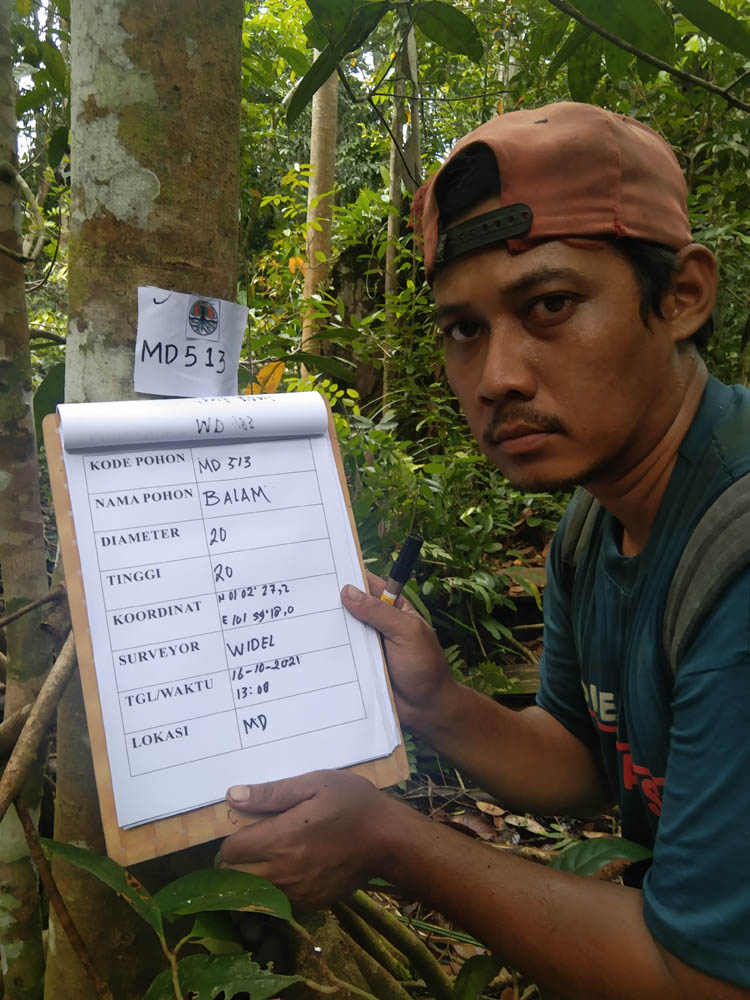 MD 513
WD 183
KODE POHON MD 513
NAMA POHON BALAM
DIAMETER 20
TINGGI 20
KOORDINAT N 01 02' 27,2
E 101 59' 18,0
SURVEYOR WIDEL
TGL/WAKTU 16-10-2021
13:08
LOKASI MD